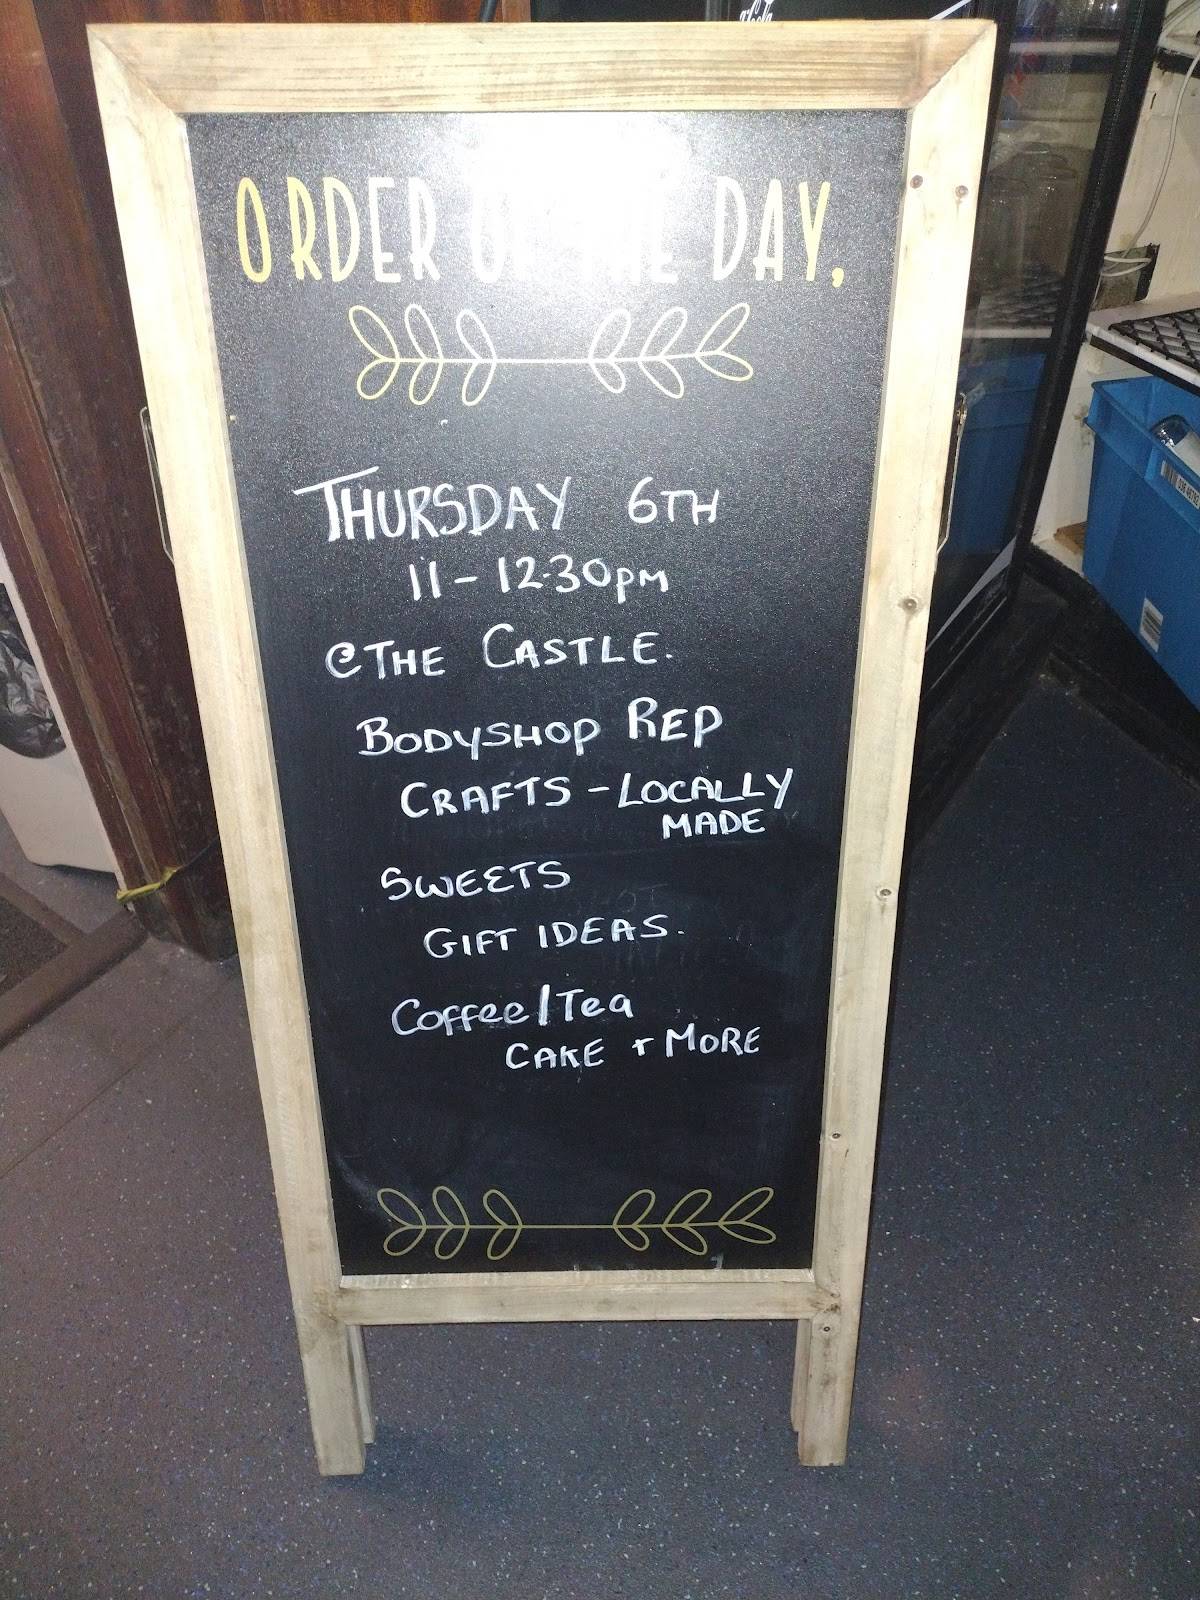 ORDER OF THE DAY,
THURSDAY 6TH
11 - 12.30PM
@ THE CASTLE.
BODYSHOP REP
CRAFTS - LOCALLY
MADE
SWEETS
GIFT IDEAS.
Coffee/Tea
CAKE + MORE